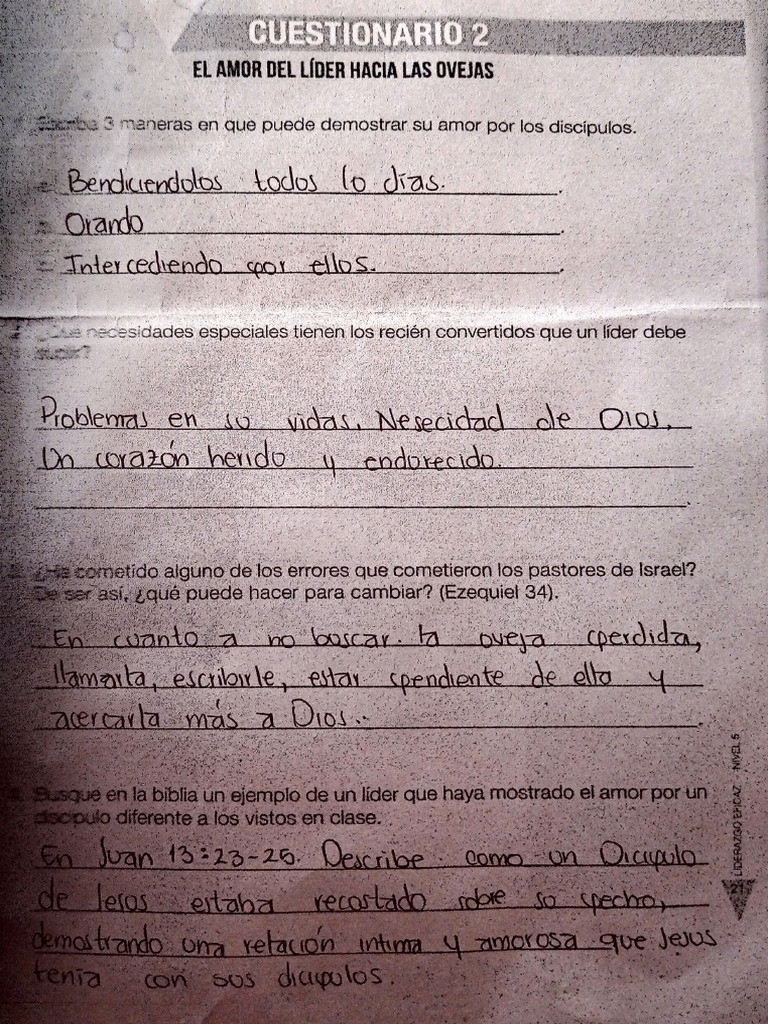 CUESTIONARIO 2
EL AMOR DEL LÍDER HACIA LAS OVEJAS
Escriba 3 maneras en que puede demostrar su amor por los discípulos.
Bendiciendolos todos lo días.
Orando
Intercediendo por ellos.
¿Que necesidades especiales tienen los recién convertidos que un líder debe
suplir?
Problemas en su vidas, Nesecidad de Dios,
Un corazón herido y endorecido.
¿Ha cometido alguno de los errores que cometieron los pastores de Israel?
De ser así, ¿qué puede hacer para cambiar? (Ezequiel 34).
En cuanto a no buscar la oveja perdida,
llamarla, escribirle, estar pendiente de ella y
acercarla más a Dios..
Busque en la biblia un ejemplo de un líder que haya mostrado el amor por un
discípulo diferente a los vistos en clase.
En Juan 13:23-25. Describe como un Dicipulo
de Jesos estaba recostado sobre su pecho,
demostrando una relación intima y amorosa que Jesus
tenia con sus dicipulos.
LIDERAZGO EFICAZ - NIVEL 5
21